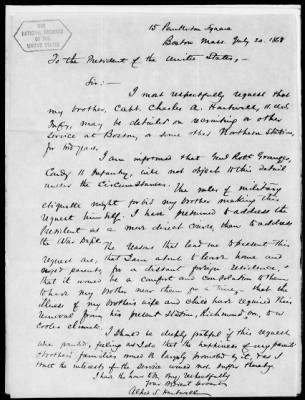 THE
NATIONAL ARCHIVES
OF THE
UNITED STATES
15 Pemberton Square
Boston Mass. July 20. 1868
To the President of the United States,
Sir:—
I most respectfully request that
my brother, Capt. Charles A. Hartwell, 11 U.S.
Infty, may be detailed on recruiting or other
service at Boston, or some other Northern Station,
for
I am informed that Genl Robt Granger,
Comdg 11 Infantry, will not object to this detail
under the circumstances. The rules of military
etiquette might forbid my brother making this
request himself. I have presumed to address the
President as a more direct course, than to address
the War Dept.
The reasons that lead me to present this
request are, that I am about to leave home and
aged parents, for a distant foreign residence, &
that it would be a comfort and consolation to them
to have my brother near them for a time, & that the
illness of my brother's wife and child have required their
removal from his present station, Richmond, to a
cooler climate.
I should be deeply grateful if this request
were granted, feeling as I do that the happiness of my parents
& brother's families would be largely promoted by it, & as I
trust the interests of the service would not suffer thereby.
I have the honor to be, very respectfully
Your obedient servant
Alfred S. Hartwell